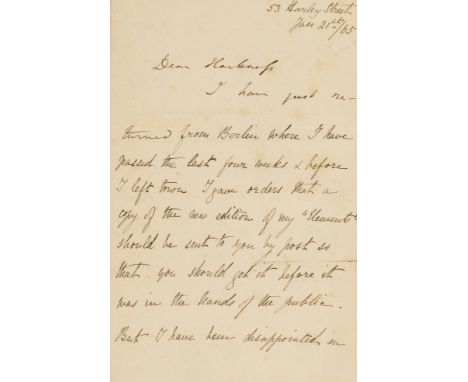 53 Harley Street
Jan 21st/65
Dear Harkness
I have just re-
turned from Berlin where I have
passed the last four weeks & before
I left town I gave orders that a
copy of the new edition of my "Elements"
should be sent to you by post so
that you should get it before it
was in the hands of the public.
But I have been disappointed in